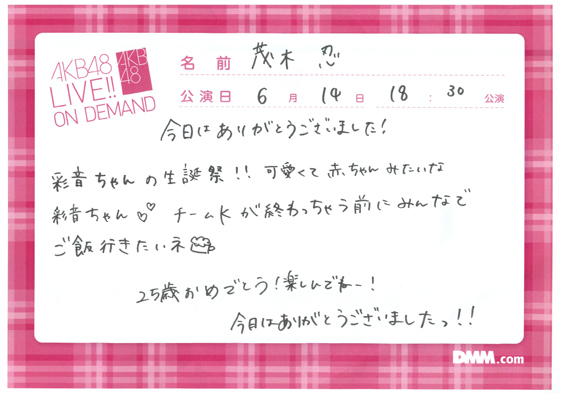 AKB48
LIVE!!
ON DEMAND
AKB
48
名前 茂木 忍
公演日 6月 14日 18:30 公演
今日はありがとうございました!
彩音ちゃんの生誕祭!! 可愛くて赤ちゃんみたいな
彩音ちゃん♡♡ チームKが終わっちゃう前にみんなで
ご飯行きたいネ
25歳おめでとう!楽しんでねー!
今日はありがとうございましたっ!!
DMM.com